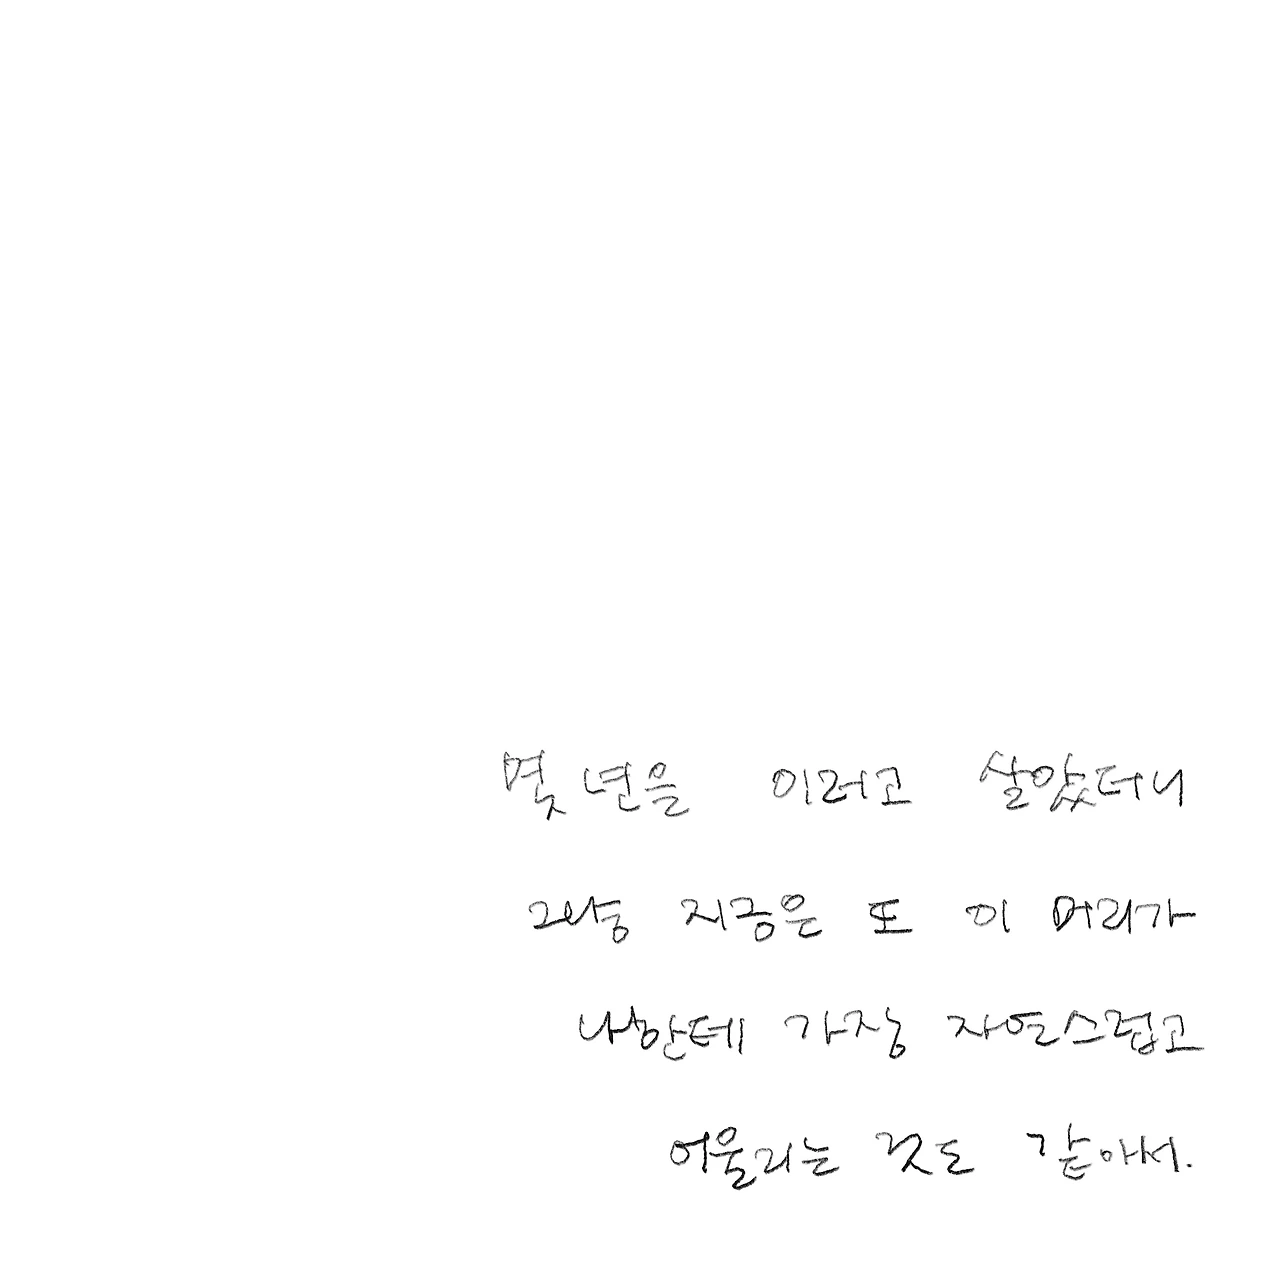 몇 년을 이러고 살았더니
그냥 지금은 또 이 머리가
나한테 가장 자연스럽고
어울리는 것도 같아서.